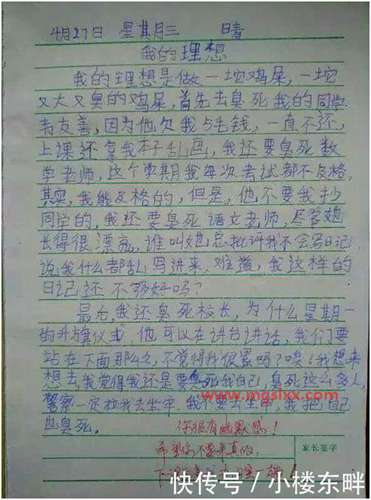 4月27日 星期三 晴
我的理想
我的理想是做一坨鸡屎,一坨
又大又臭的鸡屎,首先去臭死我的同学
韦友善,因为他欠我5毛钱,一直不还,
上课还拿我本子乱画,我还要臭死数
学老师,这个学期我每次考试都不及格,
其实,我能及格的,但是,他不要我抄
同学的,我还要臭死语文老师,尽管她
长得很漂亮,谁叫她总批评我不会写日记
说我什么都乱写进来,难道,我这样的
日记还不够好吗?
最后我还臭死校长,为什么星期一
的升旗仪式,他可以在讲台讲话,我们要
站在下面那么久,不觉得我很累吗?唉!我想来
想去,我觉得我还是要臭死我自己,臭死这么多人,
警察一定拉我去坐牢,我不要去坐牢,我把自己
也臭死。
www.mgslxx.com
你很有幽默感!
希望你不要来真的,
家长签字
快传号 / 小楼东畔